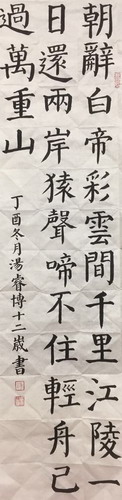 朝辭白帝彩雲間千里江陵一
日還兩岸猿聲啼不住輕舟已
過萬重山
丁酉冬月湯睿博十二歲書